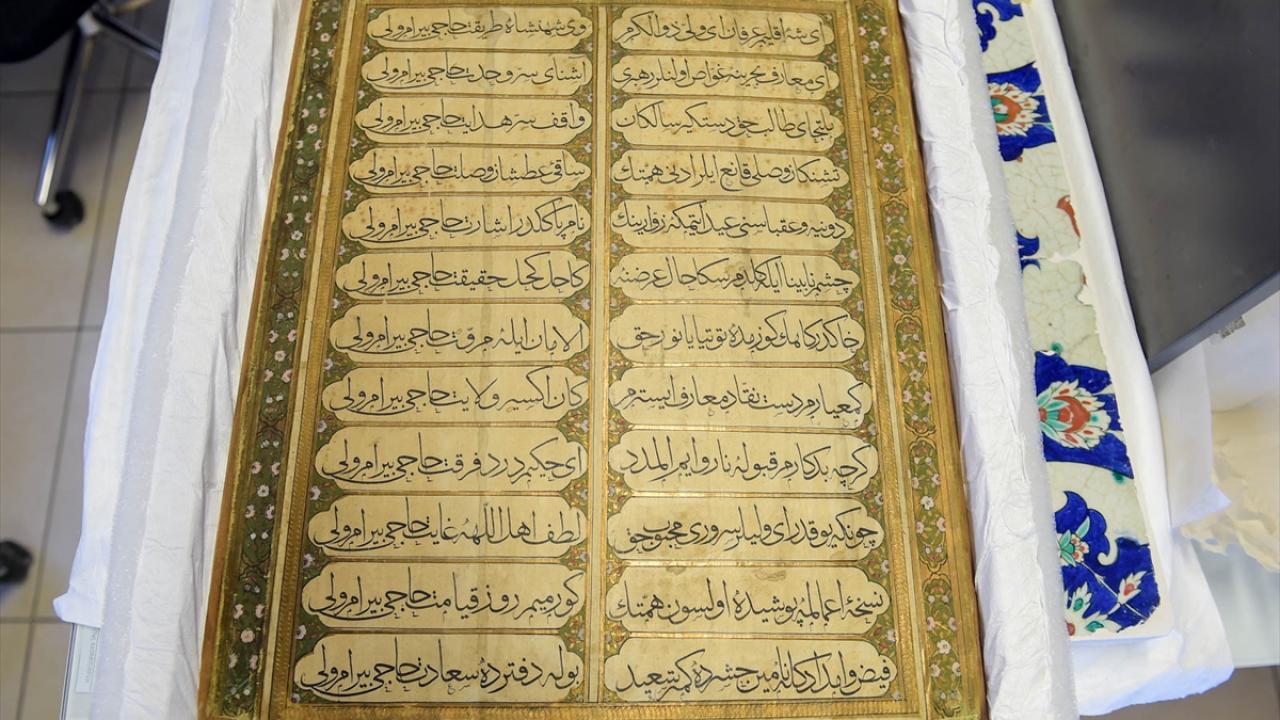 ای شه اقلیم عرفان ای ولی ذوالکرم
وی شهنشاه طریقت حاجی بیرام ولی
ای معارف بحرینه غواص اولنلر رهبری
آشنای سر وحدت حاجی بیرام ولی
ملتجای طالب حق دستگیر سالکان
واقف سر هدایت حاجی بیرام ولی
تشنکان وصلی قانع ایلر ادنی همتك
ساقی عطشان وصلت حاجی بیرام ولی
دونیه و عقباسنی عید ایتمكه زوارینك
نام پاككدر اشارت حاجی بیرام ولی
چشم نابینا ایله کلدم سکا حال عرضنه
کاجل کحل حقیقت حاجی بیرام ولی
خاك درکاهك کوزمده توتیا یا نور حق
الامان ایله مروت حاجی بیرام ولی
کم عیارم دست نقاد معارف ایسترم
کان اکسیر ولایت حاجی بیرام ولی
کرچه بدکارم قبوله ناروایم المدد
ای حکیم درد فرقت حاجی بیرام ولی
چونکه یوقدر ای ولیلر سروری محبوب حق
لطف اهل اللهه غایت حاجی بیرام ولی
نسخهٔ اعمالمه پوشیده اولسون همتك
کورمیم روز قیامت حاجی بیرام ولی
فیض و امداد کانه سعید
بوله دفترده سعادت حاجی بیرام ولی